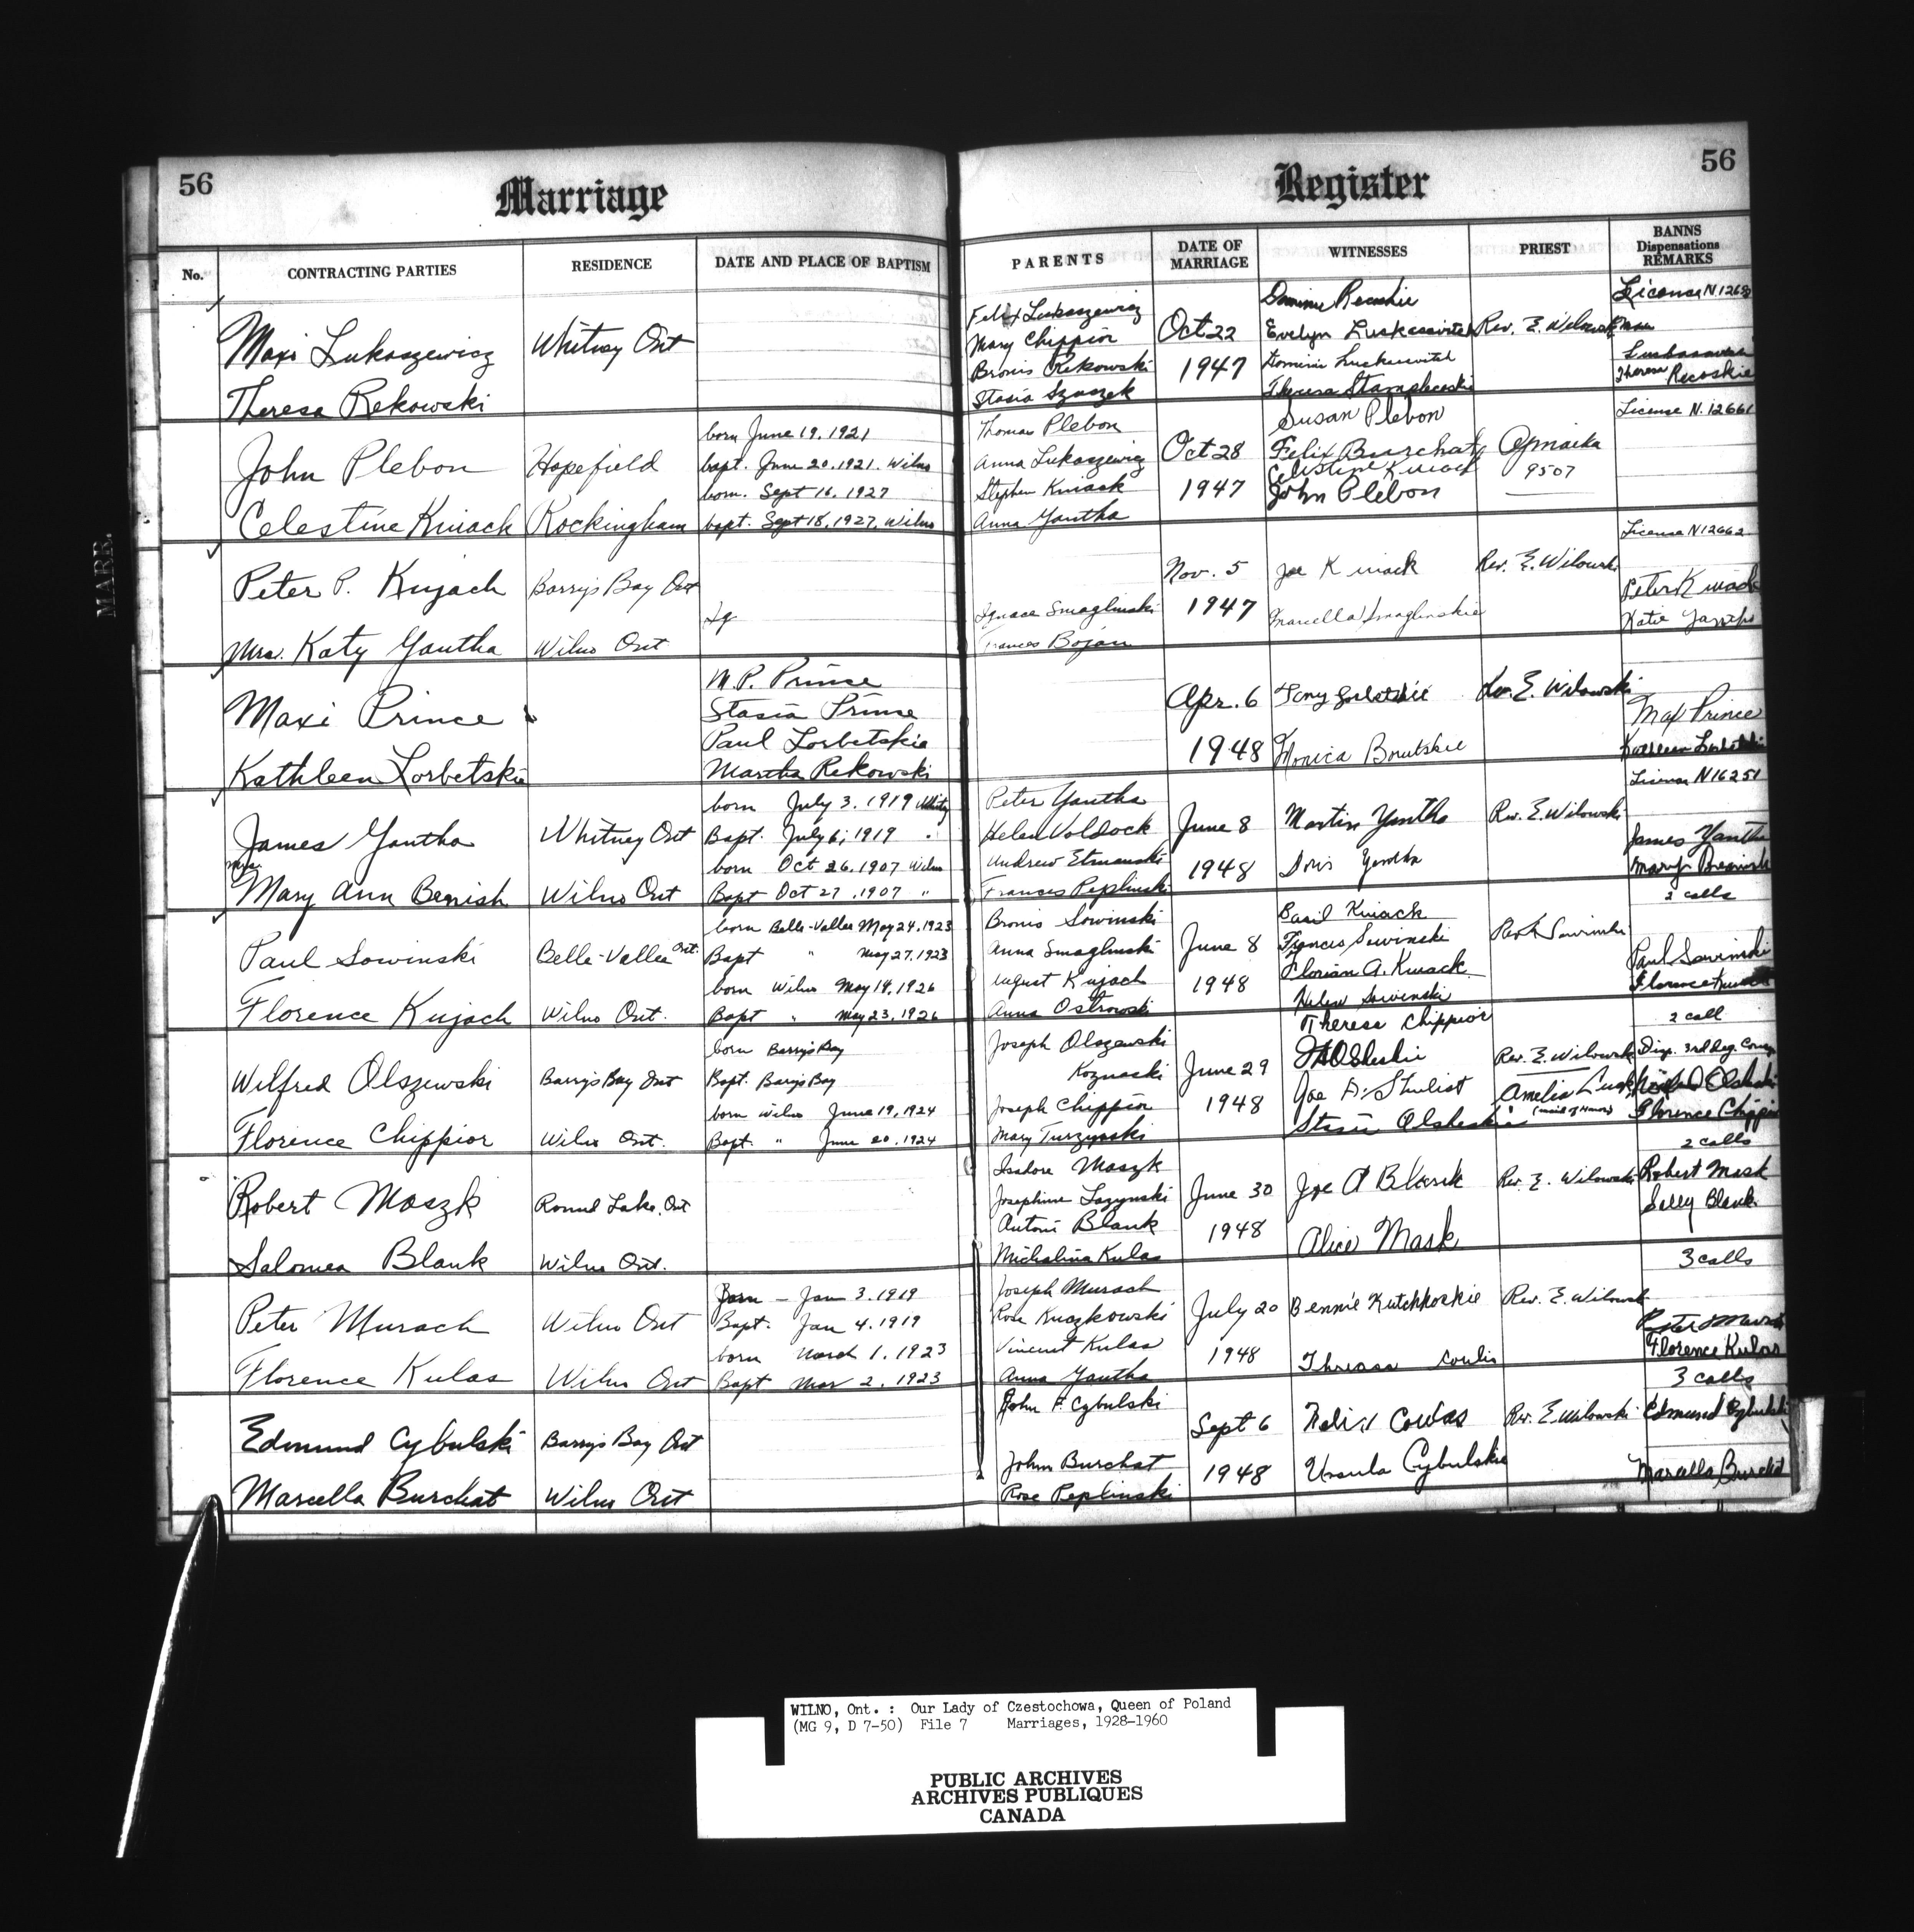 56
Marriage
Register
56
MARR.
No.
CONTRACTING PARTIES
RESIDENCE
DATE AND PLACE OF BAPTISM
PARENTS
DATE OF MARRIAGE
WITNESSES
PRIEST
BANNS Dispensations REMARKS
Maxi Lukaszewicz
Theresa Rekowski
Whitney Ont
Felix Lukaszewicz
Mary Chippior
Bronis Rekowski
Stasia
Oct 22
1947
Evelyn
Theresa
Rev. E. Wilowski
License N.
Theresa Recoskie
John Plebon
Celestine Kuiack
Hopefield
Rockingham
born June 19. 1921
bapt. June 20. 1921. Wilno
born. Sept 16. 1927
bapt. Sept 18. 1927. Wilno
Thomas Plebon
Anna Lukaszewicz
Stephen Kuiack
Anna Yantha
Oct 28
1947
Susan Plebon
Felix Burchat
Celestine Kuiack
John Plebon
9507
License N. 12661
Peter P. Kujach
Mrs. Katy Yantha
Barry's Bay Ont
Wilno Ont
Ig
Ignace Smaglinski
Frances Bojan
Nov. 5
1947
Joe Kuiack
Marcella Smaglinskie
Rev. E. Wilowski
License N12662
Peter Kuiack
Katie
Maxi Prince
Kathleen Lorbetskie
M.P. Prince
Stasia Prince
Paul Lorbetskie
Martha Rekowski
Apr. 6
1948
Tony
Monica
Rev. E. Wilowski
Max Prince
Kathleen
James Yantha
Mrs. Mary Ann Benish
Whitney Ont
Wilno Ont
born July 3. 1919
Bapt. July 6, 1919 "
born Oct 26. 1907 Wilno
Bapt Oct 27. 1907 "
Peter Yantha
Helen Voldock
Andrew Etmanski
Frances Peplinski
June 8
1948
Martin Yantha
Doris Yantha
Rev. E. Wilowski
License N16251
James Yantha
Mary
2 calls
Paul Sowinski
Florence Kujach
Belle-Vallee Ont.
Wilno Ont.
born Belle-Vallee May 24. 1923
Bapt " May 27. 1923
born Wilno May 14. 1926
Bapt " May 23. 1926
Bronis Sowinski
Anna Smaglinski
August Kujach
Anna Ostrowski
June 8
1948
Basil Kuiack
Frances Sowinski
Florian A. Kuiack
Helen Sowinski
Paul Sowinski
Florence
2 call
Wilfred Olszewski
Florence Chippior
Barry's Bay Ont
Wilno Ont.
born Barry's Bay
Bapt. Barry's Bay
born Wilno June 19, 1924
Bapt. " June 20. 1924
Joseph Olszewski
Joseph Chippior
Mary
June 29
1948
Theresa Chippior
Joe A. Shulist
Rev. E. Wilowski
Amelia
(maid of Honor)
Disp. 3rd deg.
Florence Chippior
2 calls
Robert Maszk
Salomea Blank
Round Lake, Ont
Wilno Ont.
Isadore Maszk
Josephine
Antoni Blank
Michalina Kulas
June 30
1948
Joe A Blank
Alice Mask
Rev. E. Wilowski
Robert Mask
Selly Blank
3 calls
Peter Murach
Florence Kulas
Wilno Ont
Wilno Ont
Born - Jan 3. 1919
Bapt. Jan 4. 1919
born March 1. 1923
Bapt Mar 2. 1923
Joseph Murach
Rose Kuczkowski
Vincent Kulas
Anna Yantha
July 20
1948
Bennie Kutchkoskie
Rev. E. Wilowski
Florence Kulas
3 calls
Edmund Cybulski
Marcella Burchat
Barry's Bay Ont
Wilno Ont
John F. Cybulski
John Burchat
Rose Peplinski
Sept 6
1948
Ursula Cybulskie
Rev. E. Wilowski
Edmund Cybulski
Marcella Burchat
WILNO, Ont. : Our Lady of Czestochowa, Queen of Poland
(MG 9, D 7-50) File 7 Marriages, 1928-1960
PUBLIC ARCHIVES
ARCHIVES PUBLIQUES
CANADA